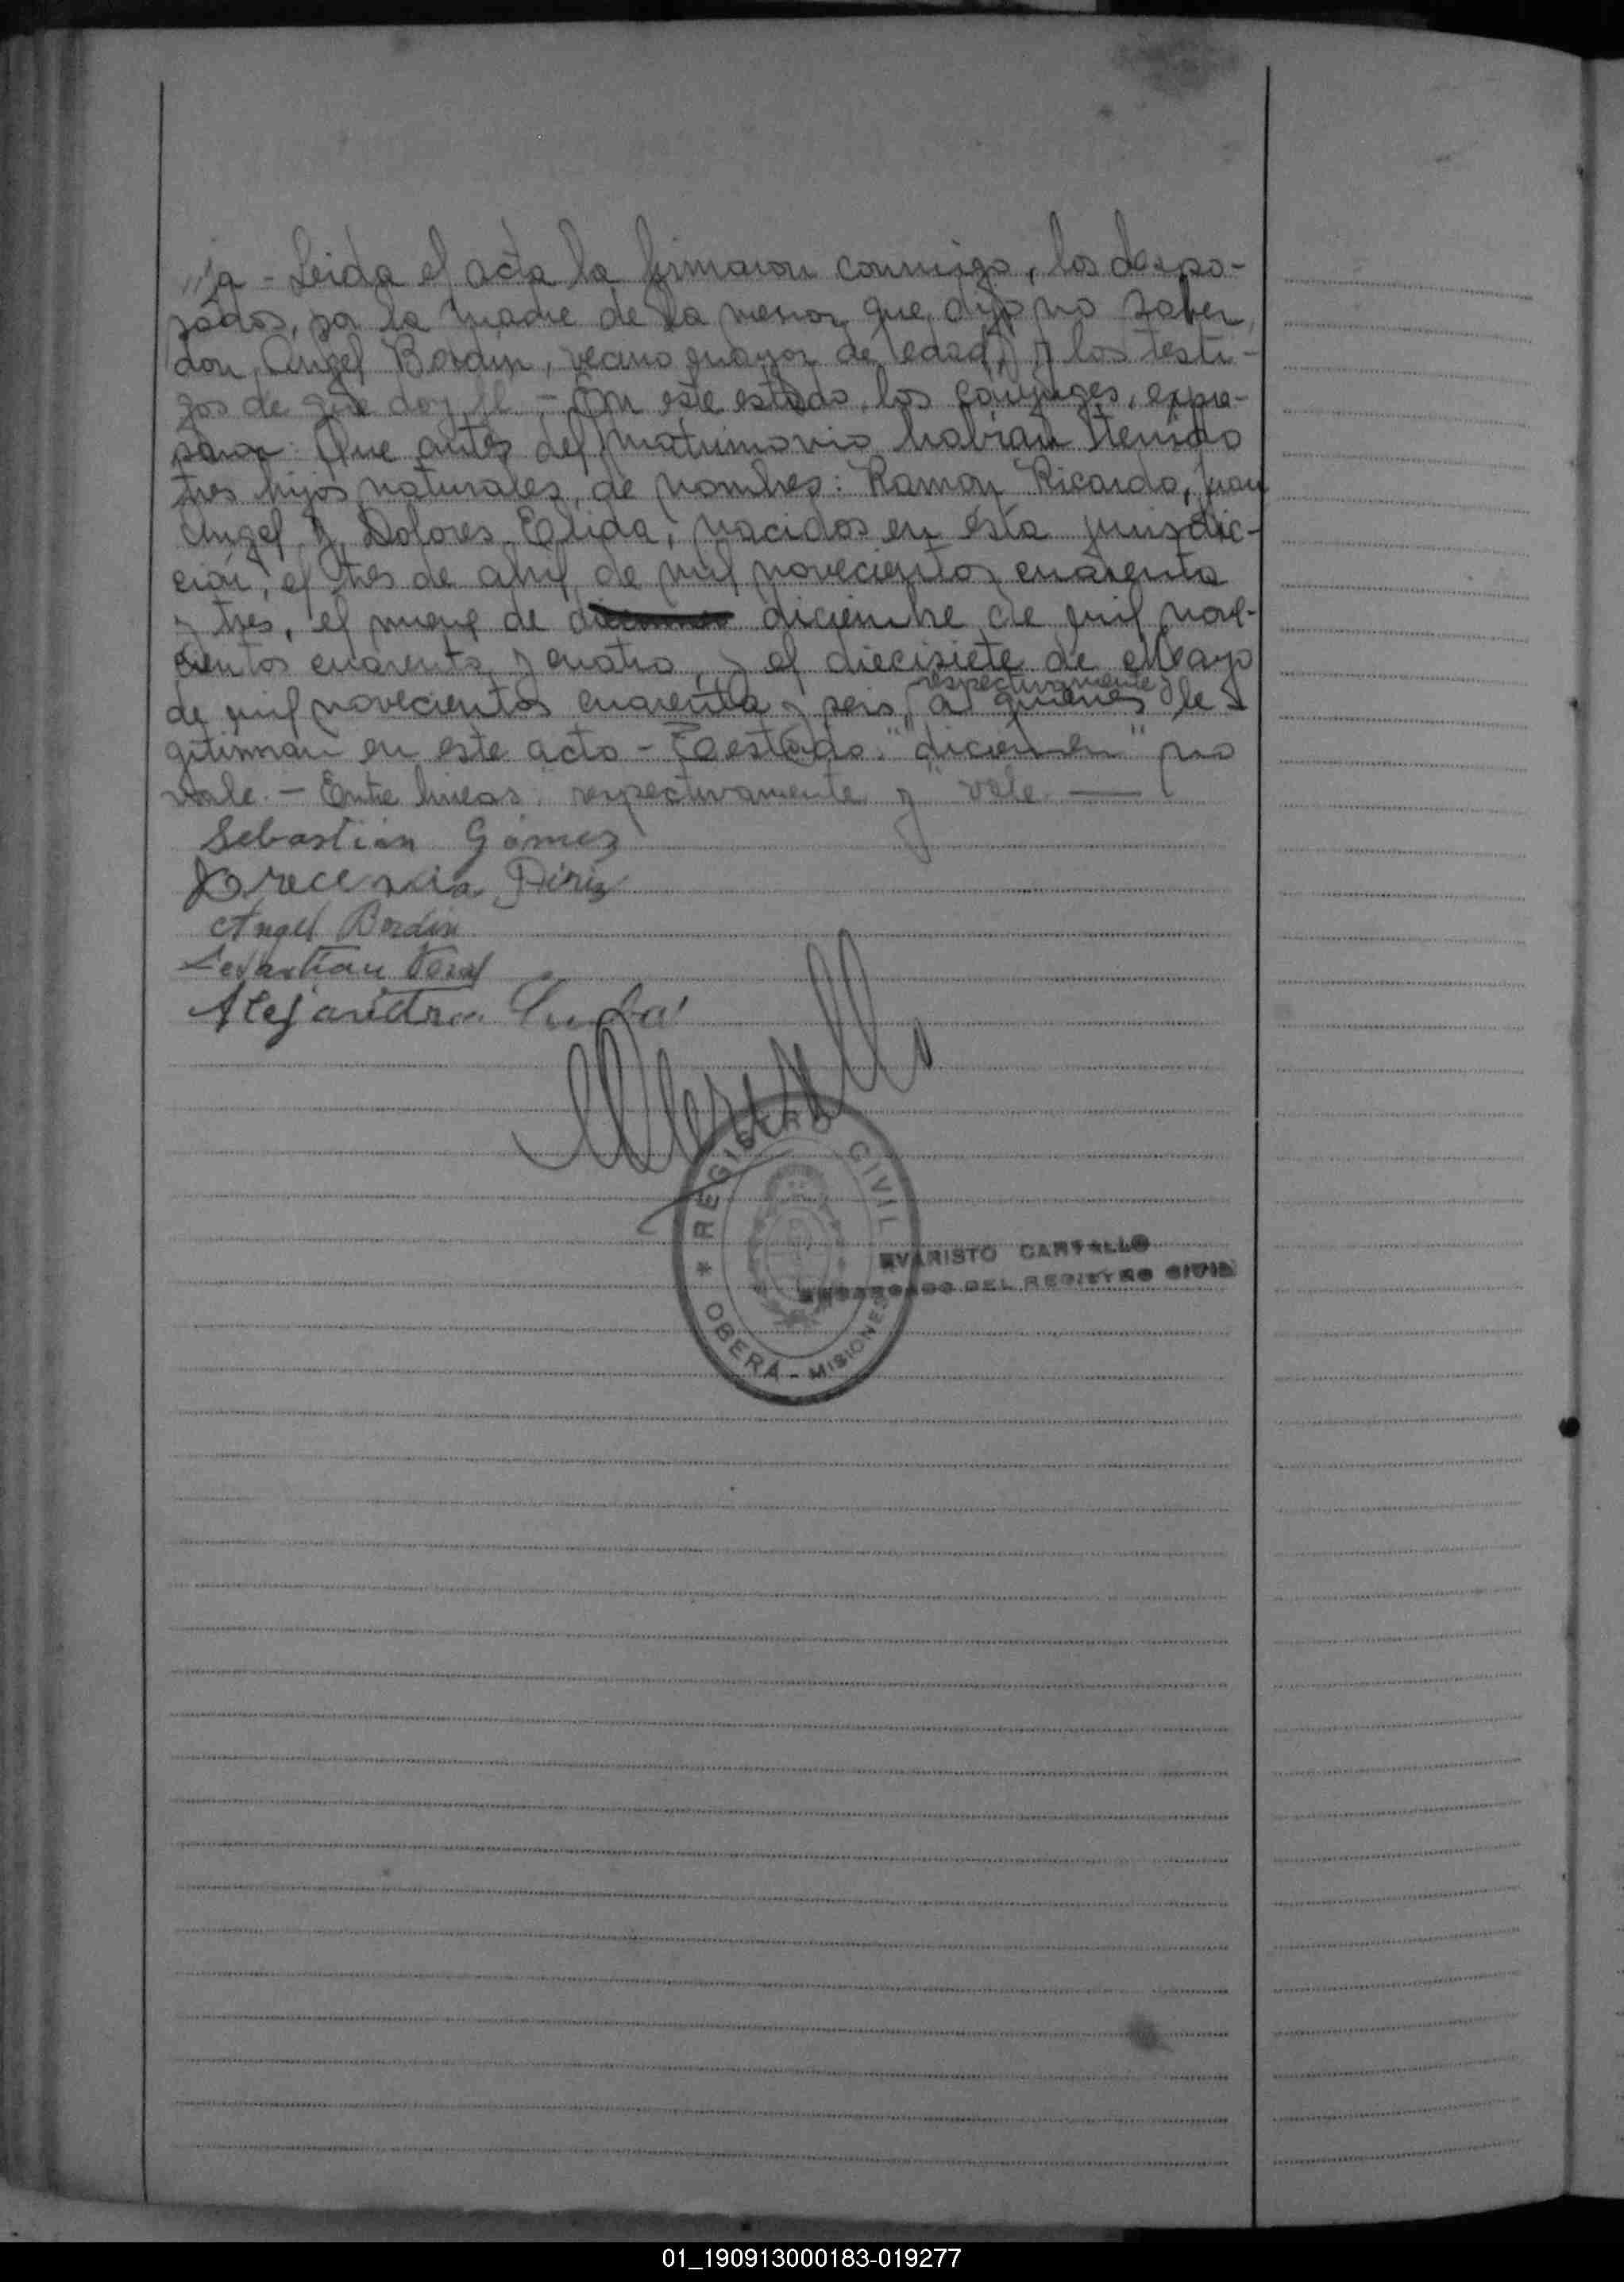 "'a - Leida el acta la firmaron conmigo, los despo-
sados, por la madre de la menor que dijo no saber,
don Angel Bordin, vecino mayor de edad, y los testi-
gos de que doy fé. - En este estado, los cónyuges, expre-
saron: Que antes del matrimonio habian tenido
tres hijos naturales, de nombres: Ramon Ricardo, Juan
Angel y Dolores Elida, nacidos en ésta jurisdic-
ción, el tres de abril de mil novecientos cuarenta
y tres, el nueve de diciembre de mil nove-
cientos cuarenta y cuatro, y el diecisiete de Mayo
respectivamente y
de mil novecientos cuarenta y seis, a quienes le
gitiman en este acto - Testado: "diciember" no
vale. - Entre lineas: respectivamente y" vale. —
Sebastián Gómez
Precensia Piriz
Angel Bordin
Sevastian
Alejandro
REGISTRO CIVIL
* OBERÁ - MISIONES
EVARISTO CARVALLO
ENCARGADO DEL REGISTRO CIVIL
01_190913000183-019277